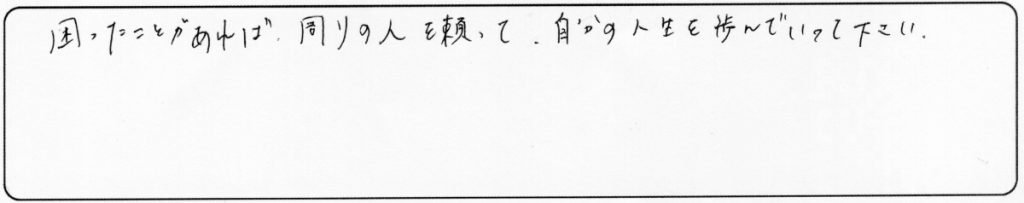 困ったことがあれば、周りの人を頼って、自分の人生を歩んでいって下さい。